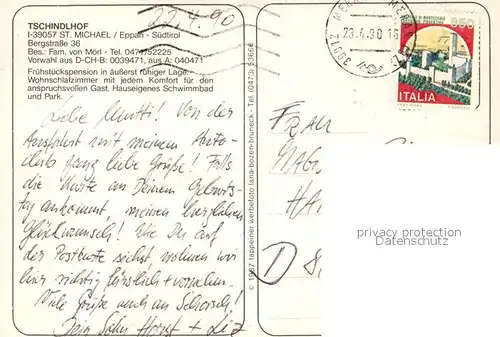 22.4.90
TSCHINDLHOF
I-39057 ST. MICHAEL / Eppan - Südtirol
Bergstraße 36
Bes.: Fam. von Mörl - Tel. 0471/52225
Vorwahl aus D-CH-B: 0039471, aus A: 040471
Frühstückspension in äußerst ruhiger Lage.
Wohnschlafzimmer mit jedem Komfort für den
anspruchsvollen Gast. Hauseigenes Schwimmbad
und Park.
Liebe Mutti! Von der
Ausfahrt mit meinem Auto-
club ganz liebe Grüße! Falls
die Karte an Deinem Geburts-
tag ankommt, meinen herzlichen
Glückwunsch! Wie Du auf
der Postkarte siehst, wohnen wir
hier richtig fürstlich + vornehm.
Viele Grüße auch an Schorsch!
Dein Sohn Horst +
© 1987 tappeiner werbefoto lana-bozen-bruneck - Tel. (0473) 53666
23.4.90 16
39012
650
ITALIA
Frau
Mag
Ha
D
privacy protection
www.ansichtskartenversand.com